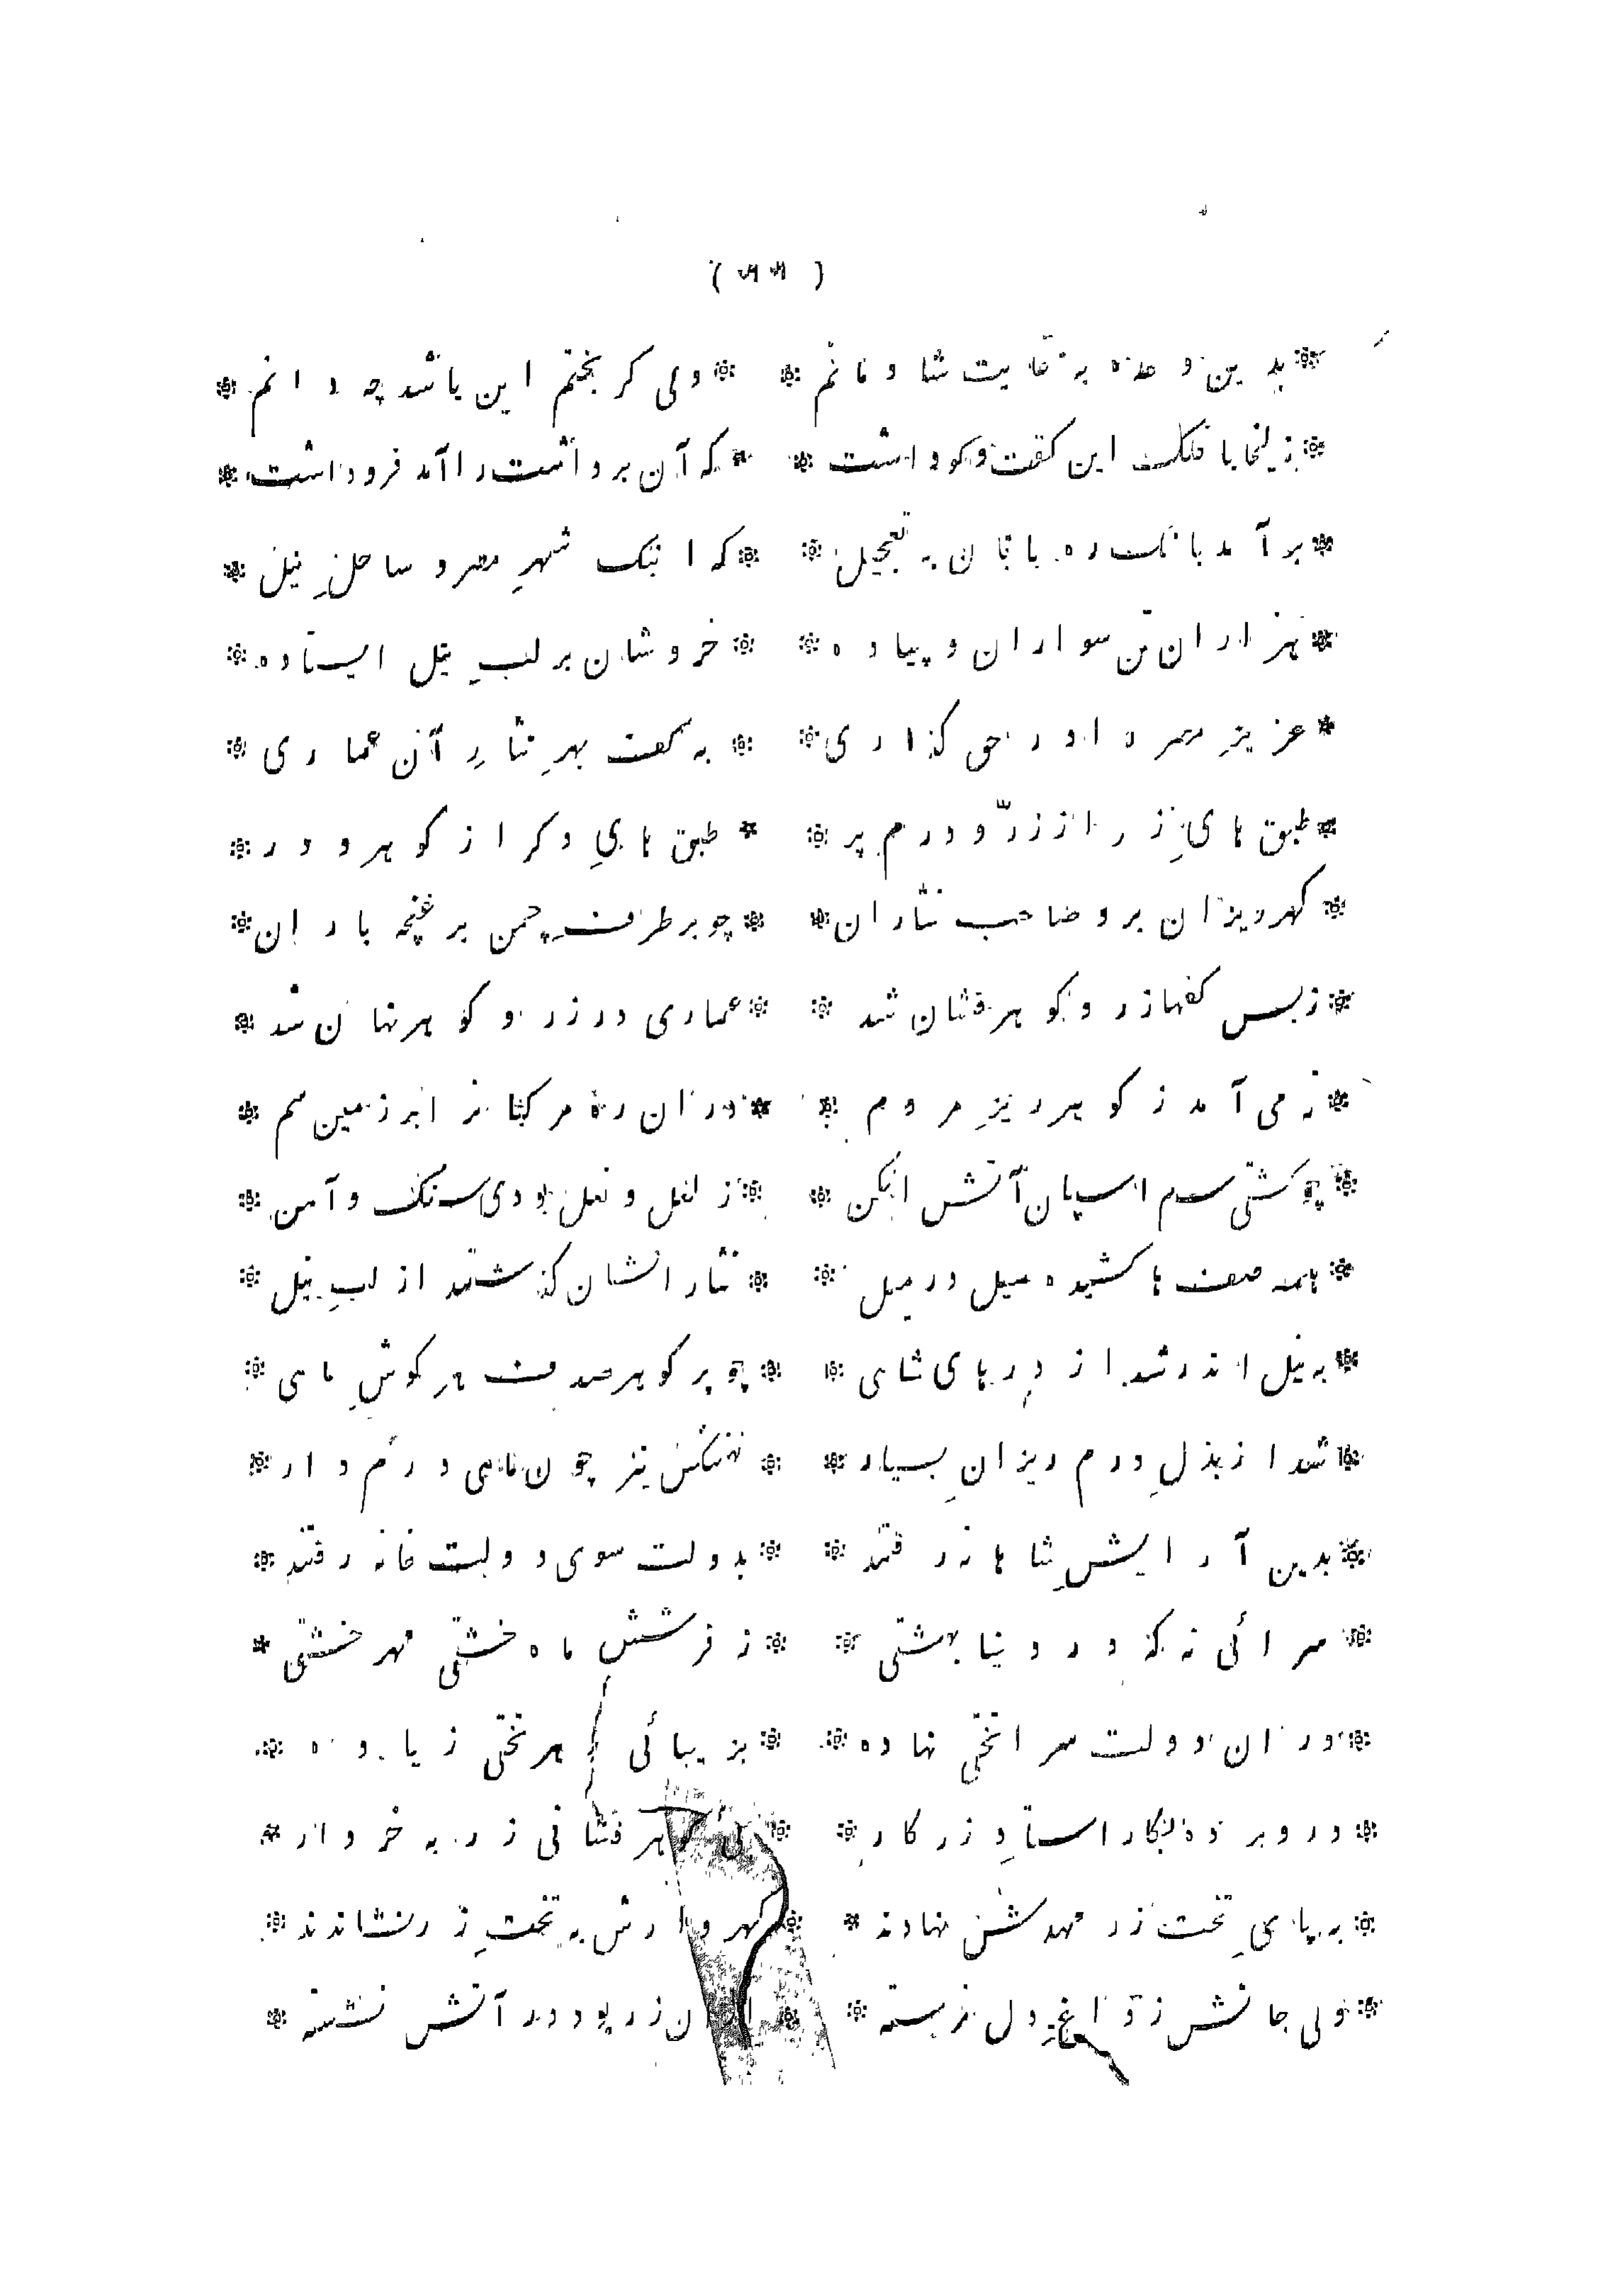 * بدین وعده به غایت شادمانم * ولی کر بختم این باشد چه دانم *
* زلیخا با فلک این کفت و کو داشت * که آن برداشت را آمد فرود داشت *
* برآمد بانک ره بانان به تعجیل * که اینک شهرِ مصر و ساحلِ نیل *
* هزاران تن سواران و پیاده * خروشان بر لبِ نیل ایستاده *
* عزیزِ مصر را در حق کذاری * به کف بهرِ نثارِ آن عماری *
* طبق هایِ زر از زرّ و درم پر * طبق هایِ دکر از کوهر و در *
* کهر ریزان برو صاحب نثاران * چو بر طرفِ چمن بر غنچه باران *
* ز بس کفها زر و کوهر فشان شد * عماری در زر و کوهر نهان شد *
* نمی آمد ز کوهر ریزِ مردم * در آن ره مرکبانرا بر زمین سم *
* چو کشتی سم اسپان آتش افکن * ز لعل و نعل بودی سنک و آهن *
* همه صف ها کشیده میل در میل * نثار افشان کذشتند از لبِ نیل *
* به نیل اندر شد از درهای شاهی * چو پر کوهر صدف هر کوشِ ماهی *
* شد از بذلِ درم ریزانِ بسیار * نهنکش نیز چون ماهی درم دار *
* بدین آرایشِ شاهانه رفتند * بدولت سوی دولت خانه رفتند *
* سرائی نه که در دنیا بهشتی * ز فرشش ماه خشتی مهر خشتی *
* در آن دولت سرا تختی نهاده * بزیبائی ز هر تختی زیاده *
* درو برده بکار استادِ زرکار * کوهر فشانی زر به خروار *
* به پایِ تخت زر مهدش نهادند * کهر وارش به تختِ زر نشاندند *
* ولی جانش ز داغِ دل نرسته * از آن زر بود در آتش نشسته *